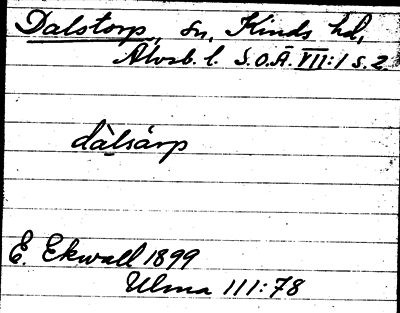 Dalstorp, sn, Kinds hd,
Älvsb. l. S.O.Ä. VII:1 s. 2
dàlsárp
E. Ekwall 1899
Ulma 111:78